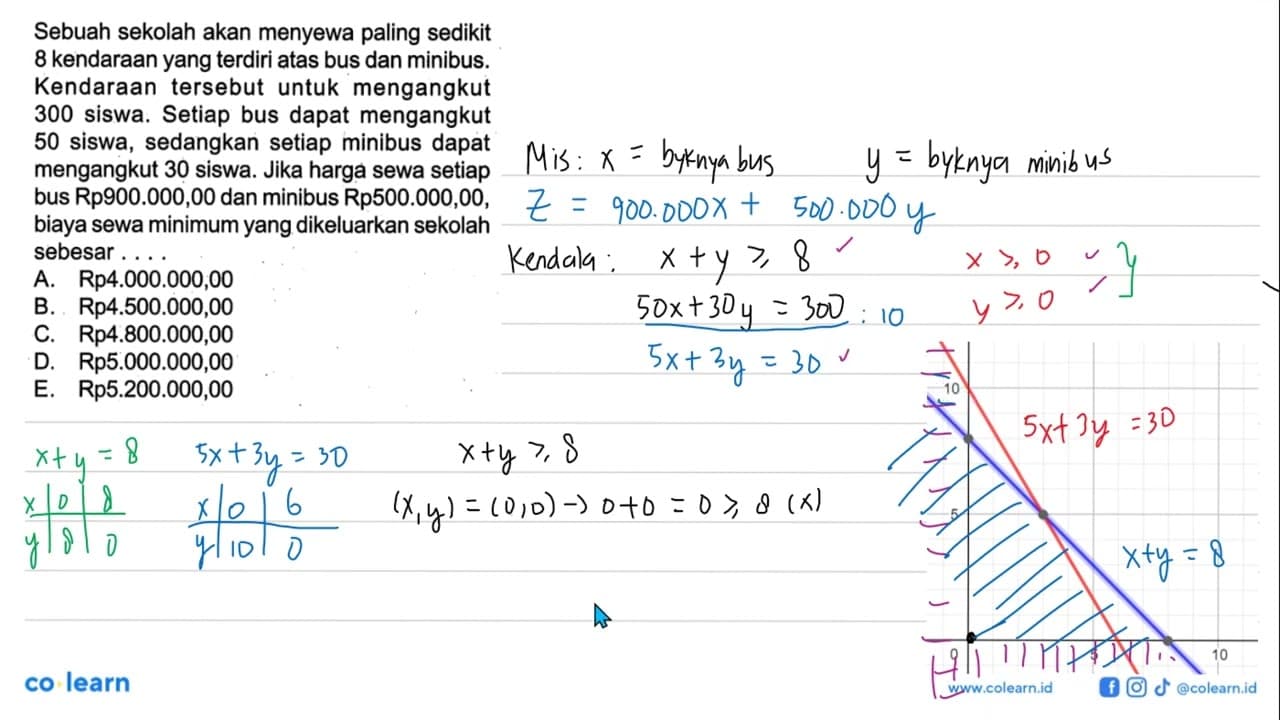 Sebuah sekolah akan menyewa paling sedikit
8 kendaraan yang terdiri atas bus dan minibus.
Kendaraan tersebut untuk mengangkut
300 siswa. Setiap bus dapat mengangkut
50 siswa, sedangkan setiap minibus dapat
mengangkut 30 siswa. Jika harga sewa setiap
bus Rp900.000,00 dan minibus Rp500.000,00,
biaya sewa minimum yang dikeluarkan sekolah
sebesar . . . .
A. Rp4.000.000,00
B. Rp4.500.000,00
C. Rp4.800.000,00
D. Rp5.000.000,00
E. Rp5.200.000,00
Mis: x = byknya bus y = byknya minibus
Z = 900.000x + 500.000y
Kendala: x + y ≥ 8 ✓ x ≥ 0 ✓
50x + 30y = 300 : 10 y ≥ 0 ✓
5x + 3y = 30 ✓
x + y = 8 5x + 3y = 30 x + y ≥ 8
x | 0 | 8 x | 0 | 6 (x, y) = (0,0) → 0 + 0 = 0 ≥ 8 (x)
y | 8 | 0 y | 10 | 0
10
5x + 3y = 30
5
x + y = 8
0 5 10
co learn
www.colearn.id
@colearn.id